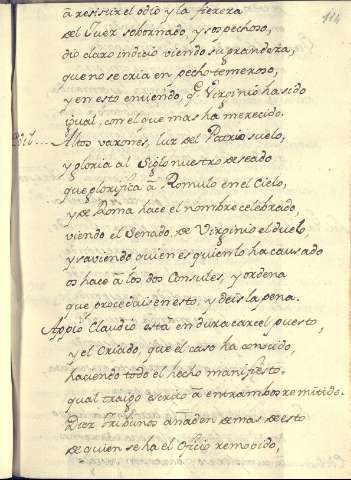 114
à resistir el odio y la fiereza
del Juez sobornado, y sospechoso,
dio claro indicio viendo su grandeza,
que no se cria en pecho temeroso,
y en esto entiendo, q.e Virginio ha sido
igual, con el que mas ha merecido.
Altos varones, luz del Patrio suelo,
y gloria al siglo nuestro deseado
que glorifica à Romulo en el Cielo,
y de Roma hace el nombre celebrado
viendo el Senado, de Virginio el duelo,
y saviendo quien es quien lo ha causado
os hace à los dos Consules, y ordena
que procedais en esto, y deis la pena.
Appio Claudio està en dura carcel puesto,
y el Criado, que el caso ha conocido,
haciendo todo el hecho manifiesto.
qual traigo escrito à entrambos remitido.
Diez Tribunos añaden demas de esto
de quien se ha el Oficio removido,